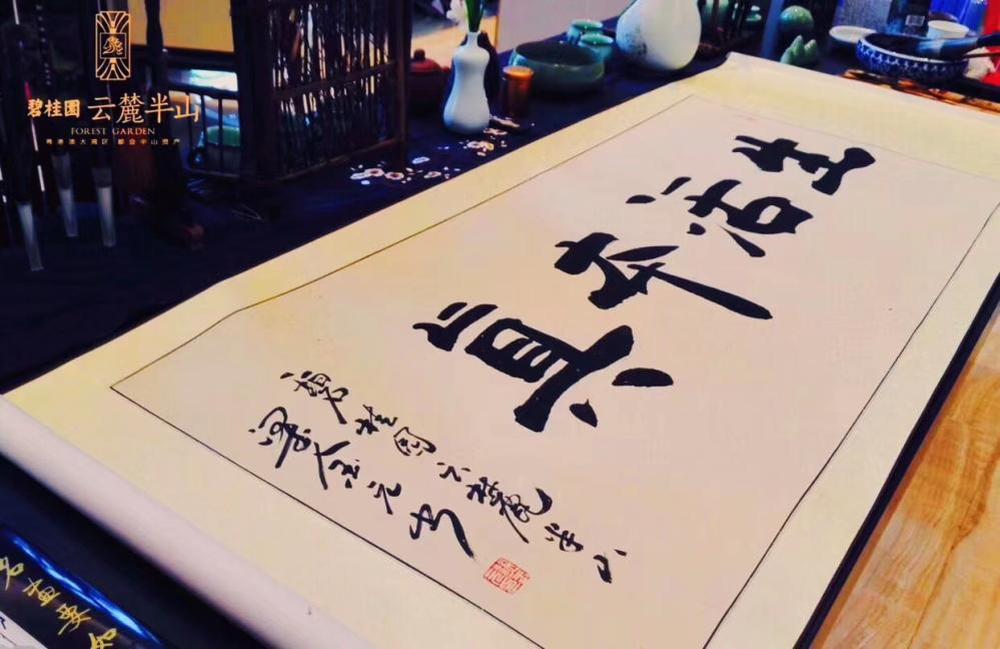 碧桂園 云麓半山
FOREST GARDEN
粤港澳大湾区 都会半山资产
生活本真
碧桂园云麓半山